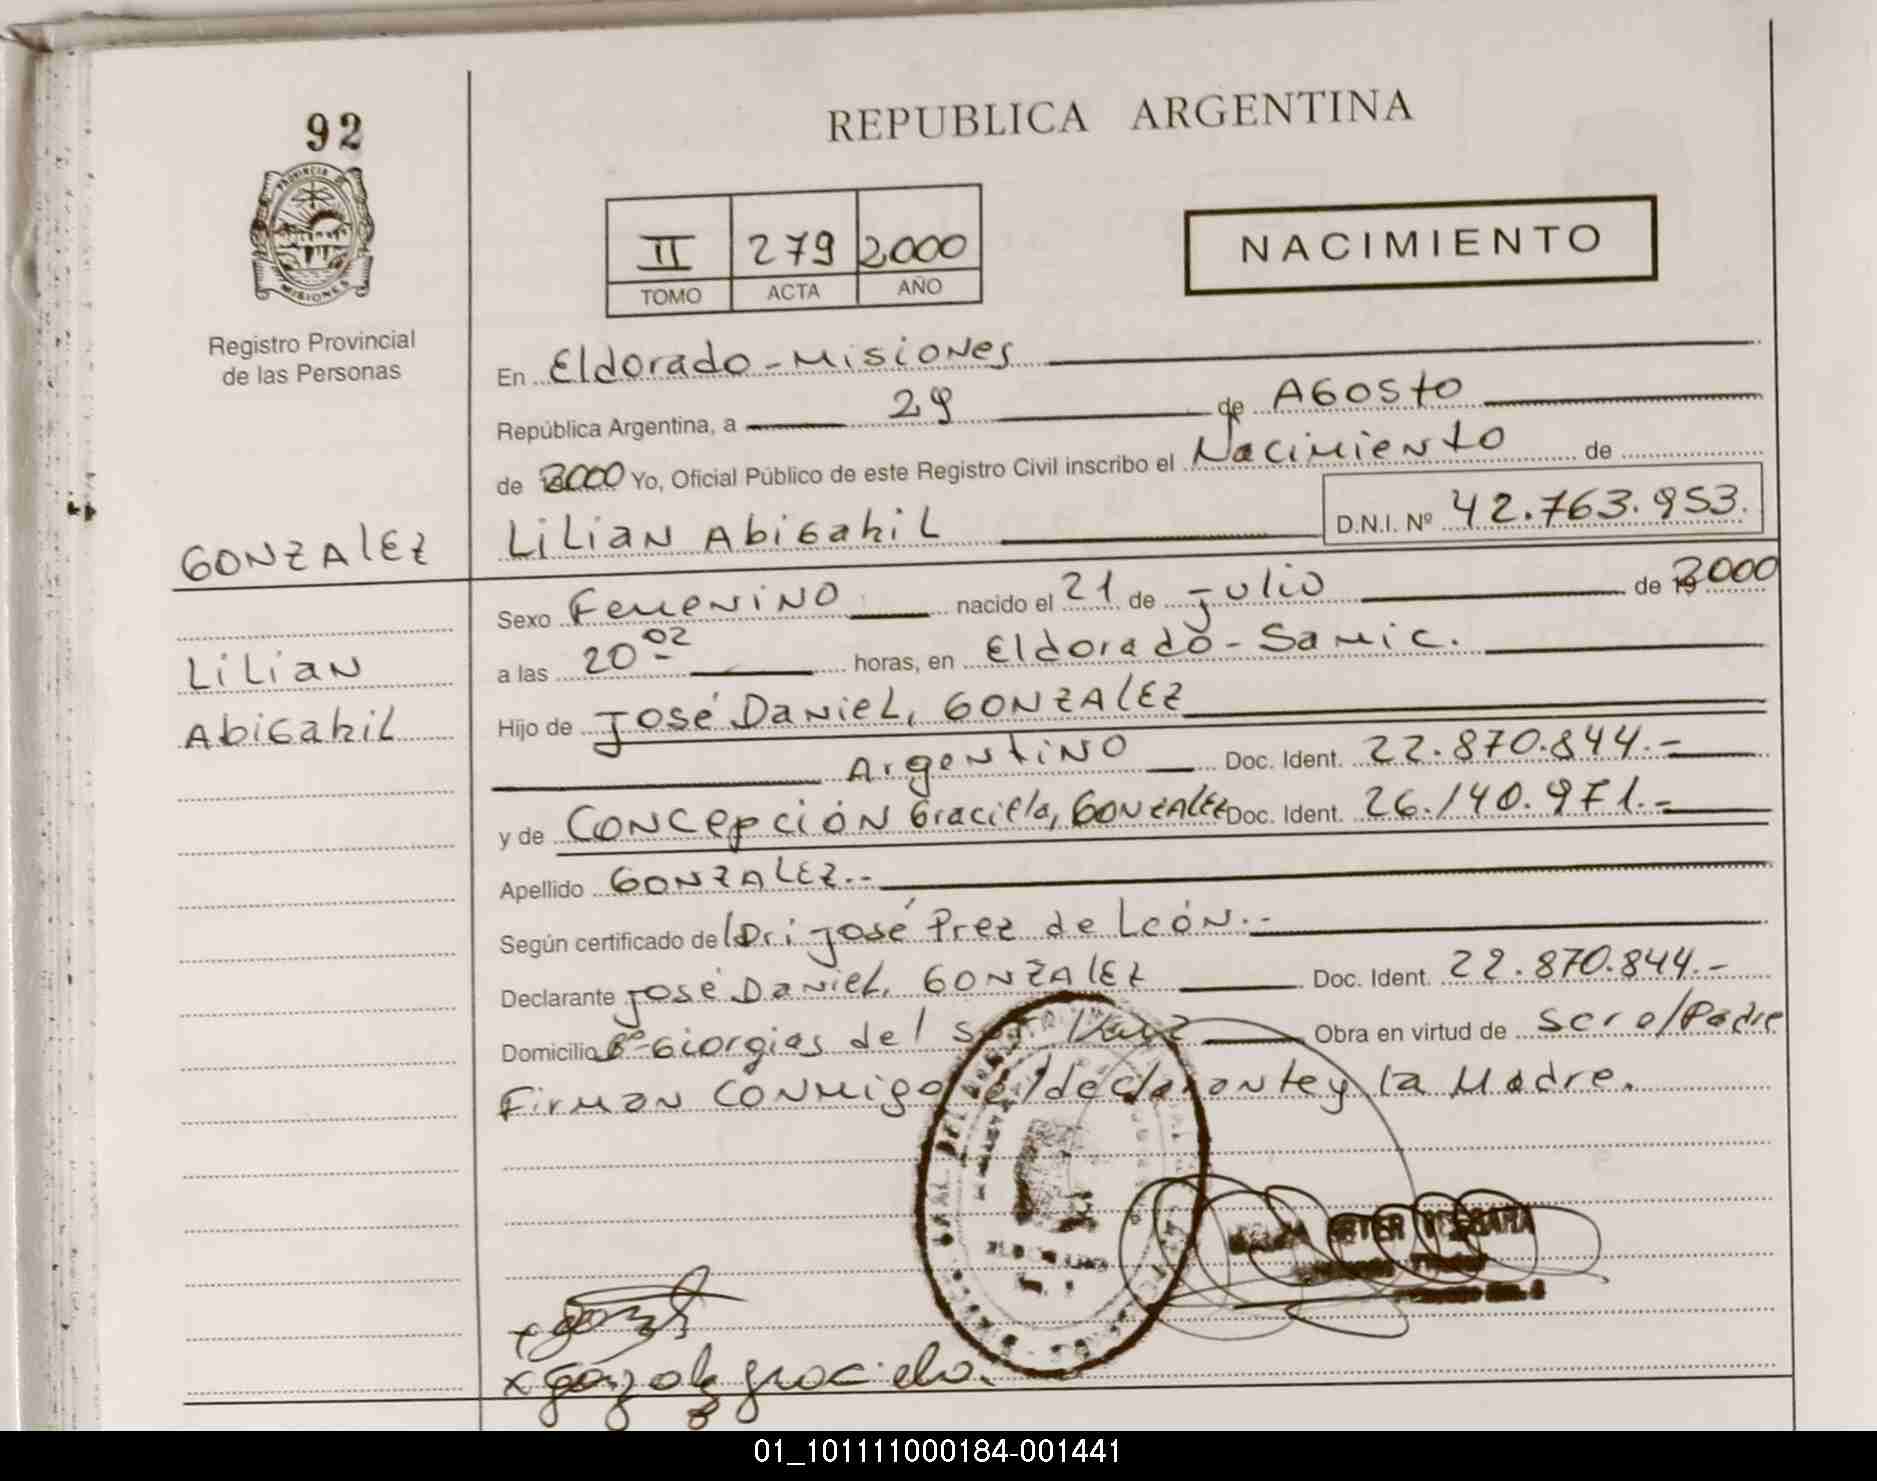 92
REPUBLICA ARGENTINA
PROVINCIA DE
MISIONES
Registro Provincial
de las Personas
II 279 2000
TOMO ACTA AÑO
NACIMIENTO
En Eldorado - Misiones
República Argentina, a 29 de Agosto
de 2000 Yo, Oficial Público de este Registro Civil inscribo el Nacimiento de
GONZALEZ
Lilian Abigahil D.N.I. Nº 42.763.953.
Sexo Femenino nacido el 21 de julio de 2000
Lilian
a las 20 02 horas, en Eldorado - Samic.
Abigahil
Hijo de José Daniel, GONZALEZ
Argentino Doc. Ident. 22.870.844.-
y de Concepción Graciela, GONZALEZ Doc. Ident. 26.140.971.-
Apellido GONZALEZ.-
Según certificado de Dr; José Prez de León.-
Declarante José Daniel, GONZALEZ Doc. Ident. 22.870.844.-
Domicilio Bº Giorgias del Obra en virtud de ser e/Padre
Firman conmigo el declarante y la Madre.
x Gonz
x gonzalez graciela.
01_101111000184-001441